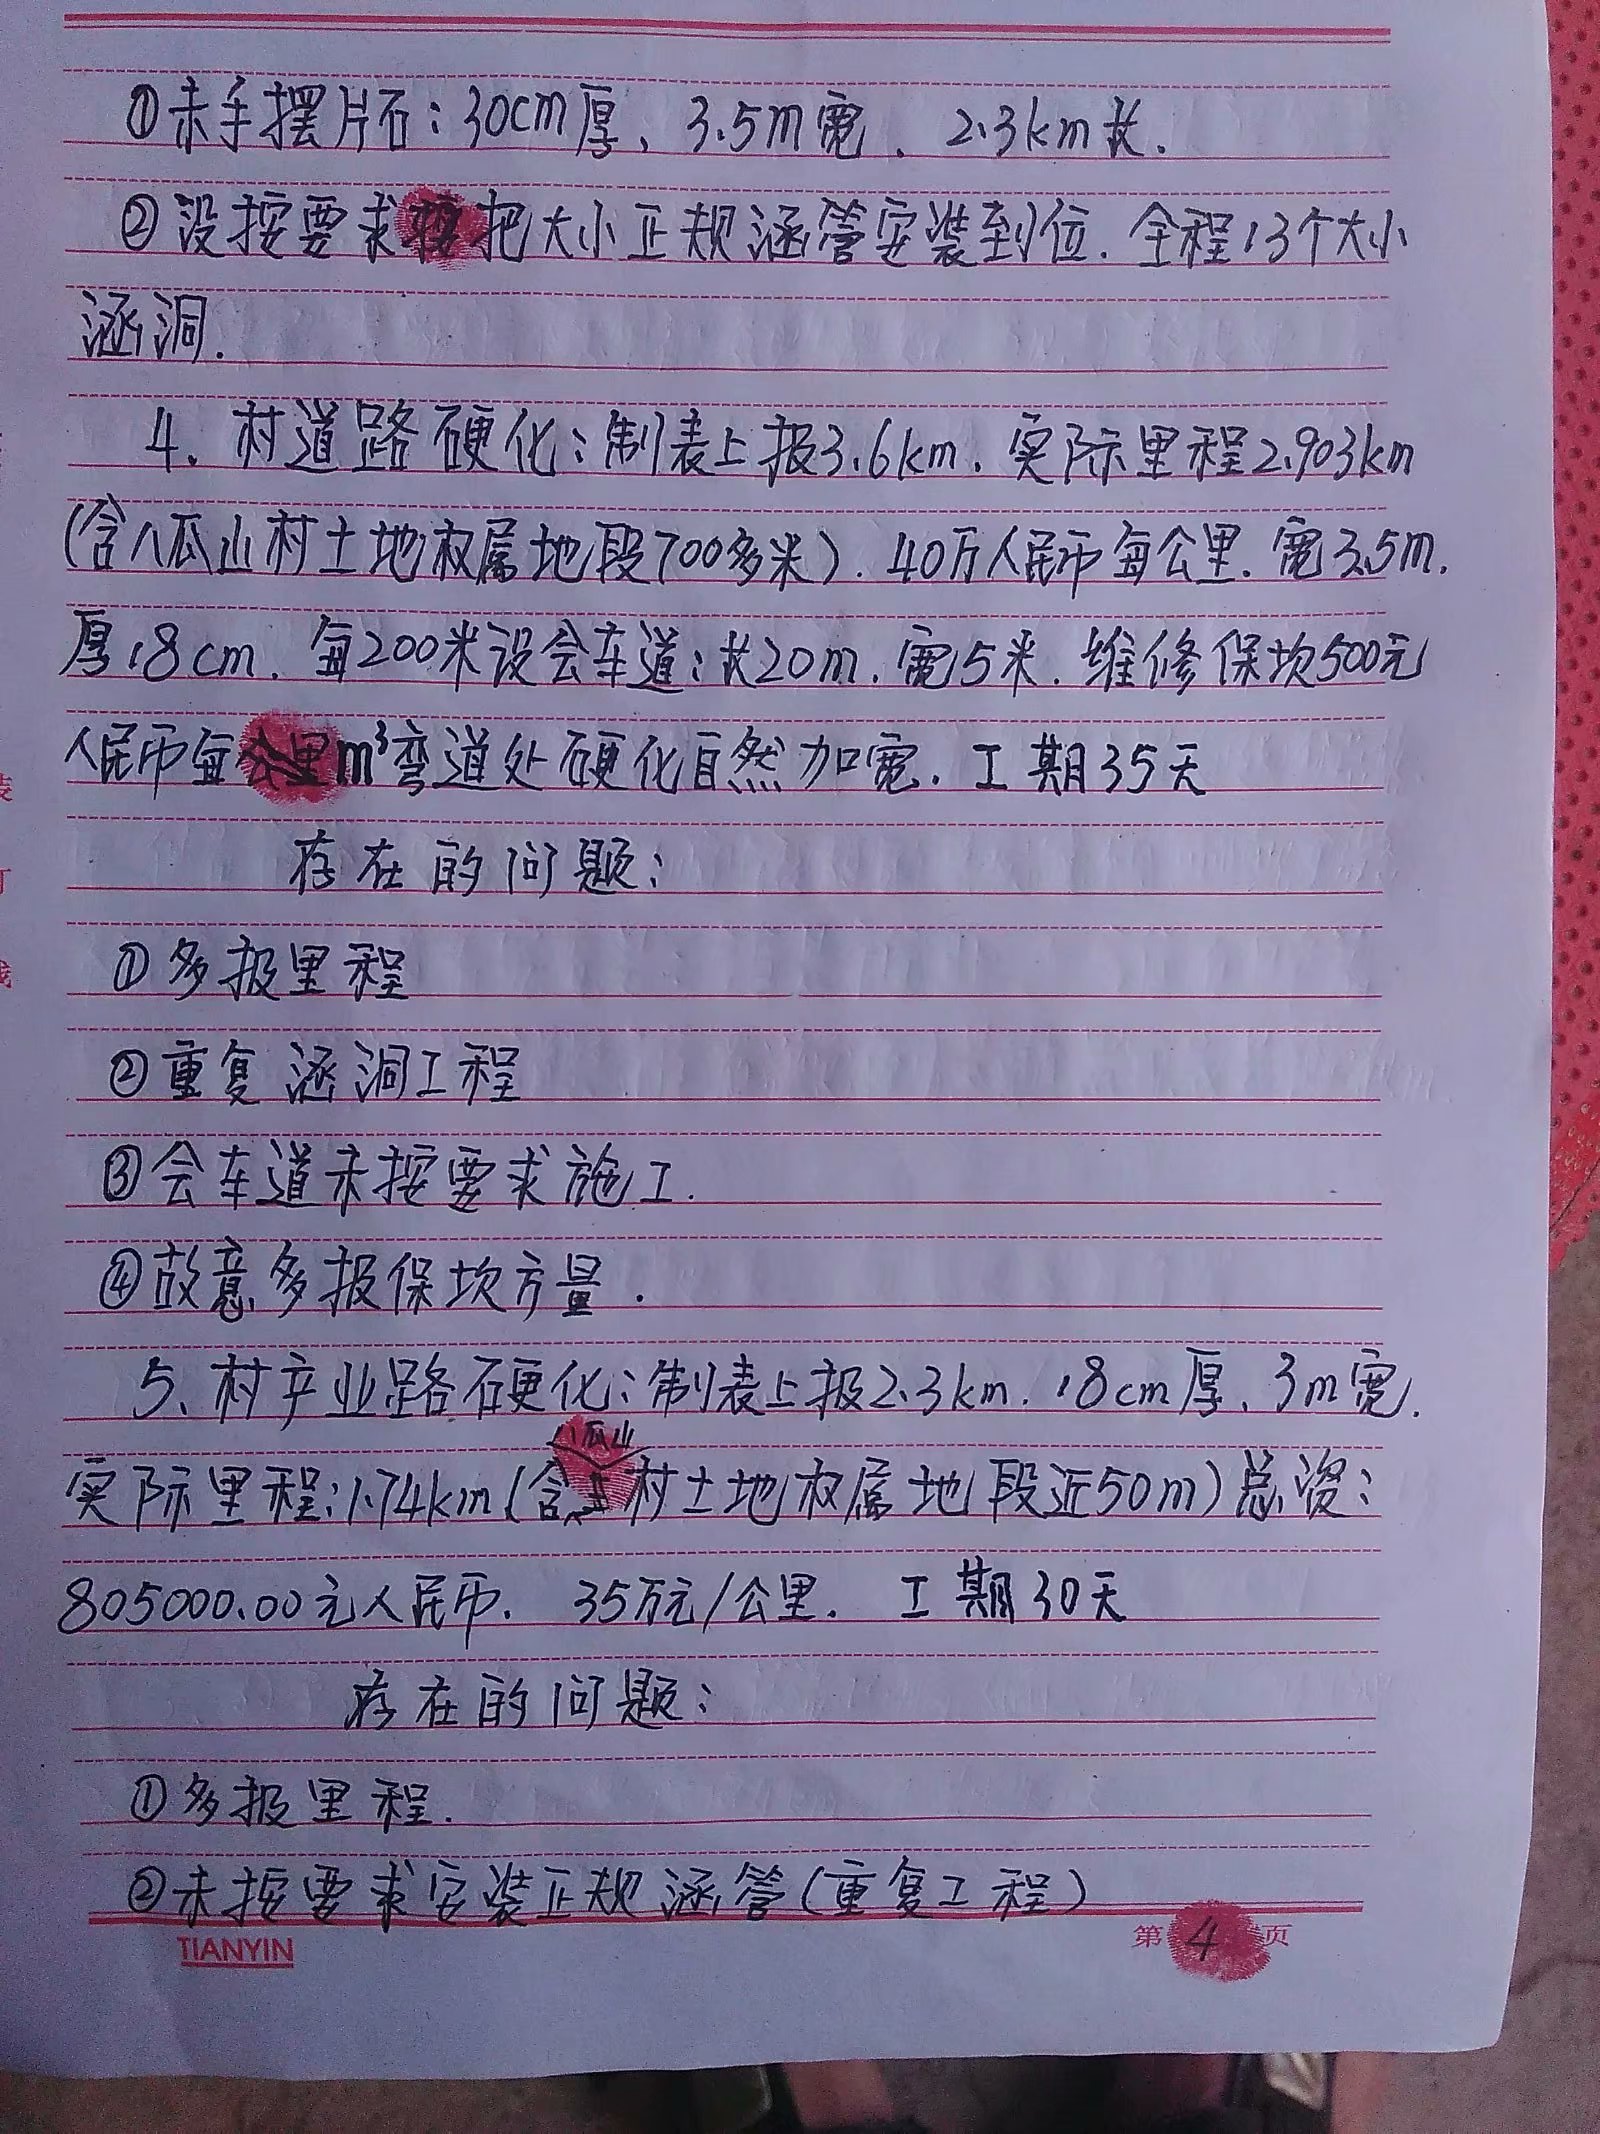 ①未手摆片石：30cm厚、3.5m宽．2.3km长．
②没按要求把大小正规涵管安装到位．全程13个大小
涵洞．
4、村道路硬化：制表上报3.6km．实际里程2.903km
(含八瓜山村土地权属地段700多米)．40万人民币每公里．宽3.5m．
厚18cm．每200米设会车道：长20m．宽5米．维修保坎500元
人民币每公里m³弯道处硬化自然加宽．工期35天
存在的问题：
①多报里程
②重复涵洞工程
③会车道未按要求施工．
④故意多报保坎方量．
5、村产业路硬化：制表上报2.3km．18cm厚、3m宽．
八瓜山
实际里程：1.74km(含村土地权属地段近50m)总资：
805000.00元人民币．35万元/公里．工期30天
存在的问题：
①多报里程．
②未按要求安装正规涵管(重复工程)
TIANYIN 第4页